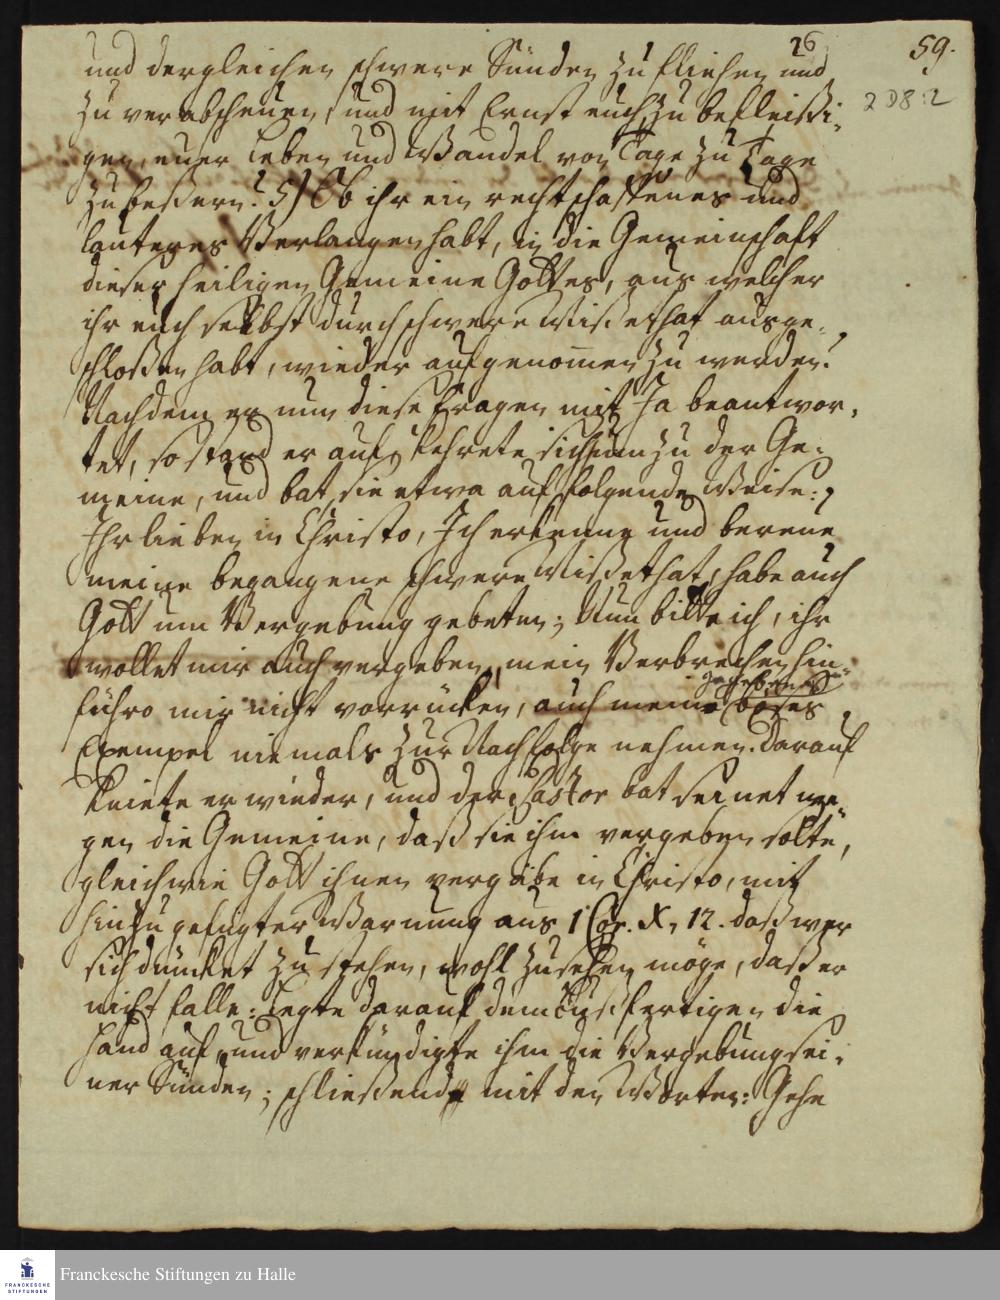 26
59.
2 D8:2
und dergleichen schwere Sünden zu fliehen und
zu verabscheuen, und mit Ernst euch zu befleißi-
gen, euer Leben und Wandel von Tage zu Tage
zu beßern? 5) Ob ihr ein rechtschaffenes und
lauteres Verlangen habt, in die Gemeinschaft
dieser heiligen Gemeine Gottes, aus welcher
ihr euch selbst durch schwere Missethat ausge-
schloßen habt, wieder aufgenom̅en zu werden?
Nachdem er nun diese Fragen mit Ja beantwor-
tet, so stand er auf, kehrete sich um zu der Ge-
meine, und bat sie etwa auf folgende Weise:
Ihr lieben in Christo, Ich erkenne und bereue
meine begangene schwere Missethat, habe auch
Gott um Vergebung gebeten; Nun bitte ich, ihr
wollet mir auch vergeben, mein Verbrechen hin-
führo mir nicht vorrücken, auch mein gegebenes böses
Exempel niemals zur Nachfolge nehmen. Darauf
kniete er wieder, und der Pastor bat seinet we-
gen die Gemeine, daß sie ihm vergeben solte,
gleichwie Gott ihnen vergäbe in Christo, mit
hinzugefügter Warnung aus 1 Cor. X, 12. daß wer
sich düncket zu stehen, wohl zusehen möge, daß er
nicht falle: Legte darauf dem Bußfertigen die
Hand auf, und verkündigte ihm die Vergebung sei-
ner Sünden; schließend mit den Worten: Gehe
FRANCKESCHE STIFTUNGEN
Franckesche Stiftungen zu Halle